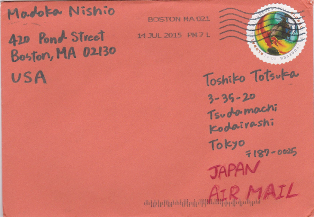 Madoka Nishio
420 Pond Street
Boston, MA 02130
USA
BOSTON MA 021
14 JUL 2015 PM 7 L
Toshiko Totsuka
3-35-20
Tsudamachi
Kodairashi
Tokyo
〒187-0025
JAPAN
AIR MAIL